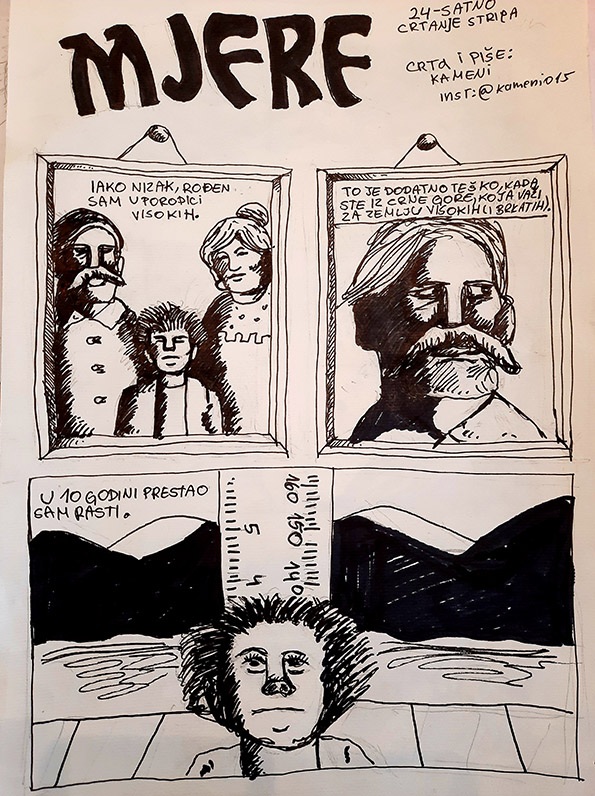 MJERE
24-SATNO
CRTANJE STRIPA
CRTA I PIŠE:
KAMENI
INST:@kameni015
IAKO NIZAK, ROĐEN
SAM U PORODICI
VISOKIH.
TO JE DODATNO TEŠKO, KADA
STE IZ CRNE GORE, KOJA VAŽI
ZA ZEMLJU VISOKIH(I BRKATIH).
U 10 GODINI PRESTAO
SAM RASTI.
5
4
160
150
140